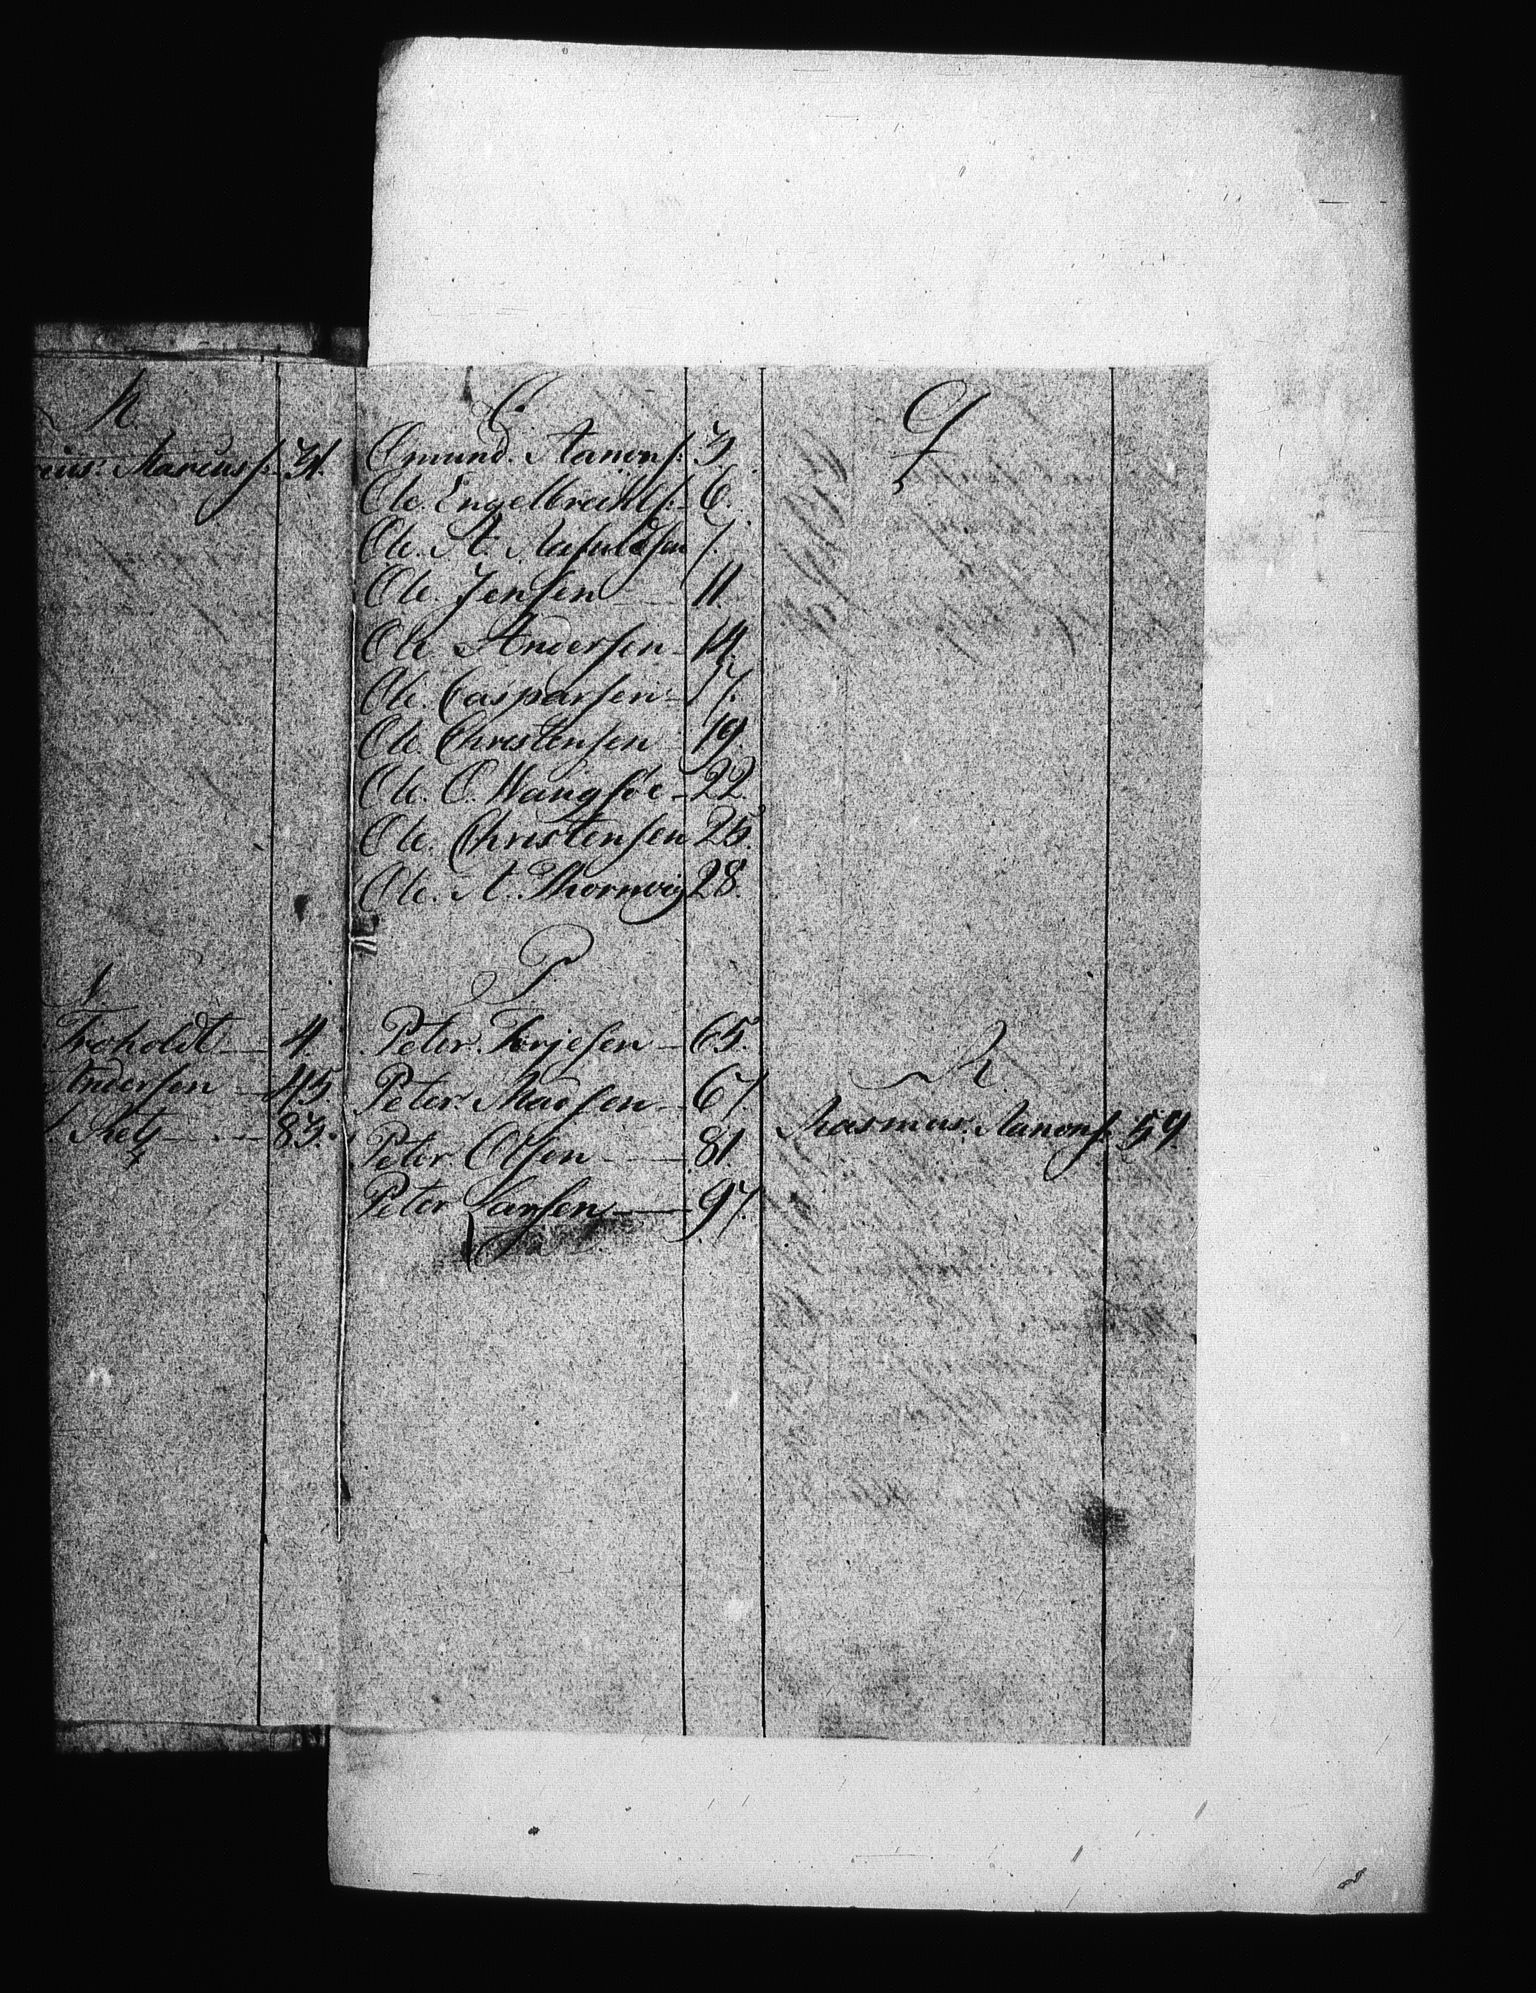 M.
cius: Marcusf: 31.
N.
Froholdt 4.
Andersen 45
Retz 83.
O.
Omund. Aanonf: 3.
Ole. Engelbrechtf: 6.
Ole. A. 7.
Ole. Jensen 11.
Ole Andersen 14.
Ole. Caspersen 17.
Ole. Christensen 19.
Ole. C. Wangsøe 22.
Ole. Christensen 25.
Ole. A. Thornvig 28.
P.
Peter. Terjesen 65.
Peter. Madsen 67.
Peter. Olsen 81.
Peter Larsen 97.
Q
R.
Rasmus. Aanonf: 59